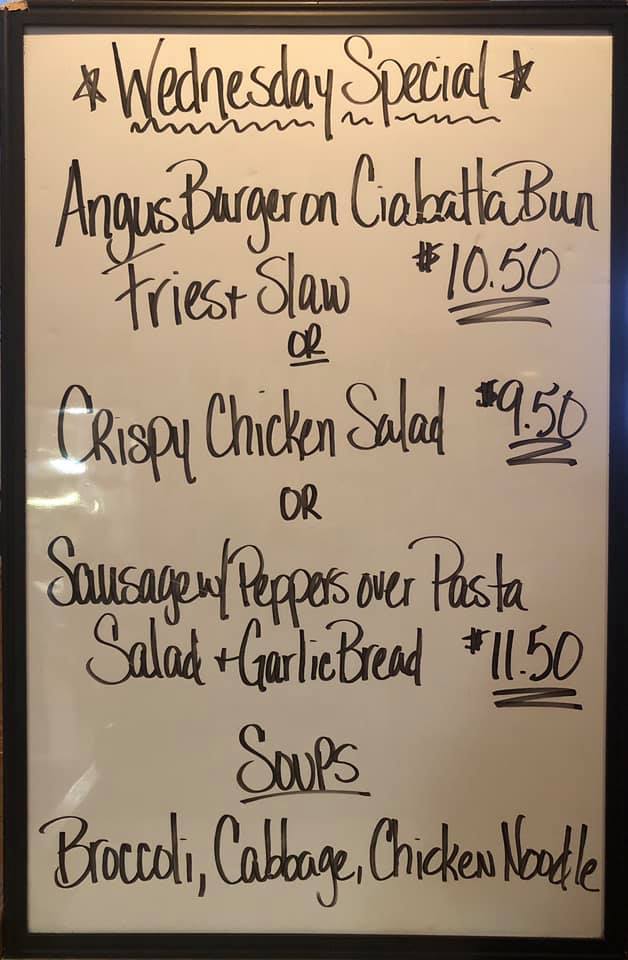 ☆ Wednesday Special ☆
Angus Burger on Ciabatta Bun
Fries + Slaw $10.50
OR
Crispy Chicken Salad $9.50
OR
Sausage w/ Peppers over Pasta
Salad + Garlic Bread $11.50
Soups
Broccoli, Cabbage, Chicken Noodle